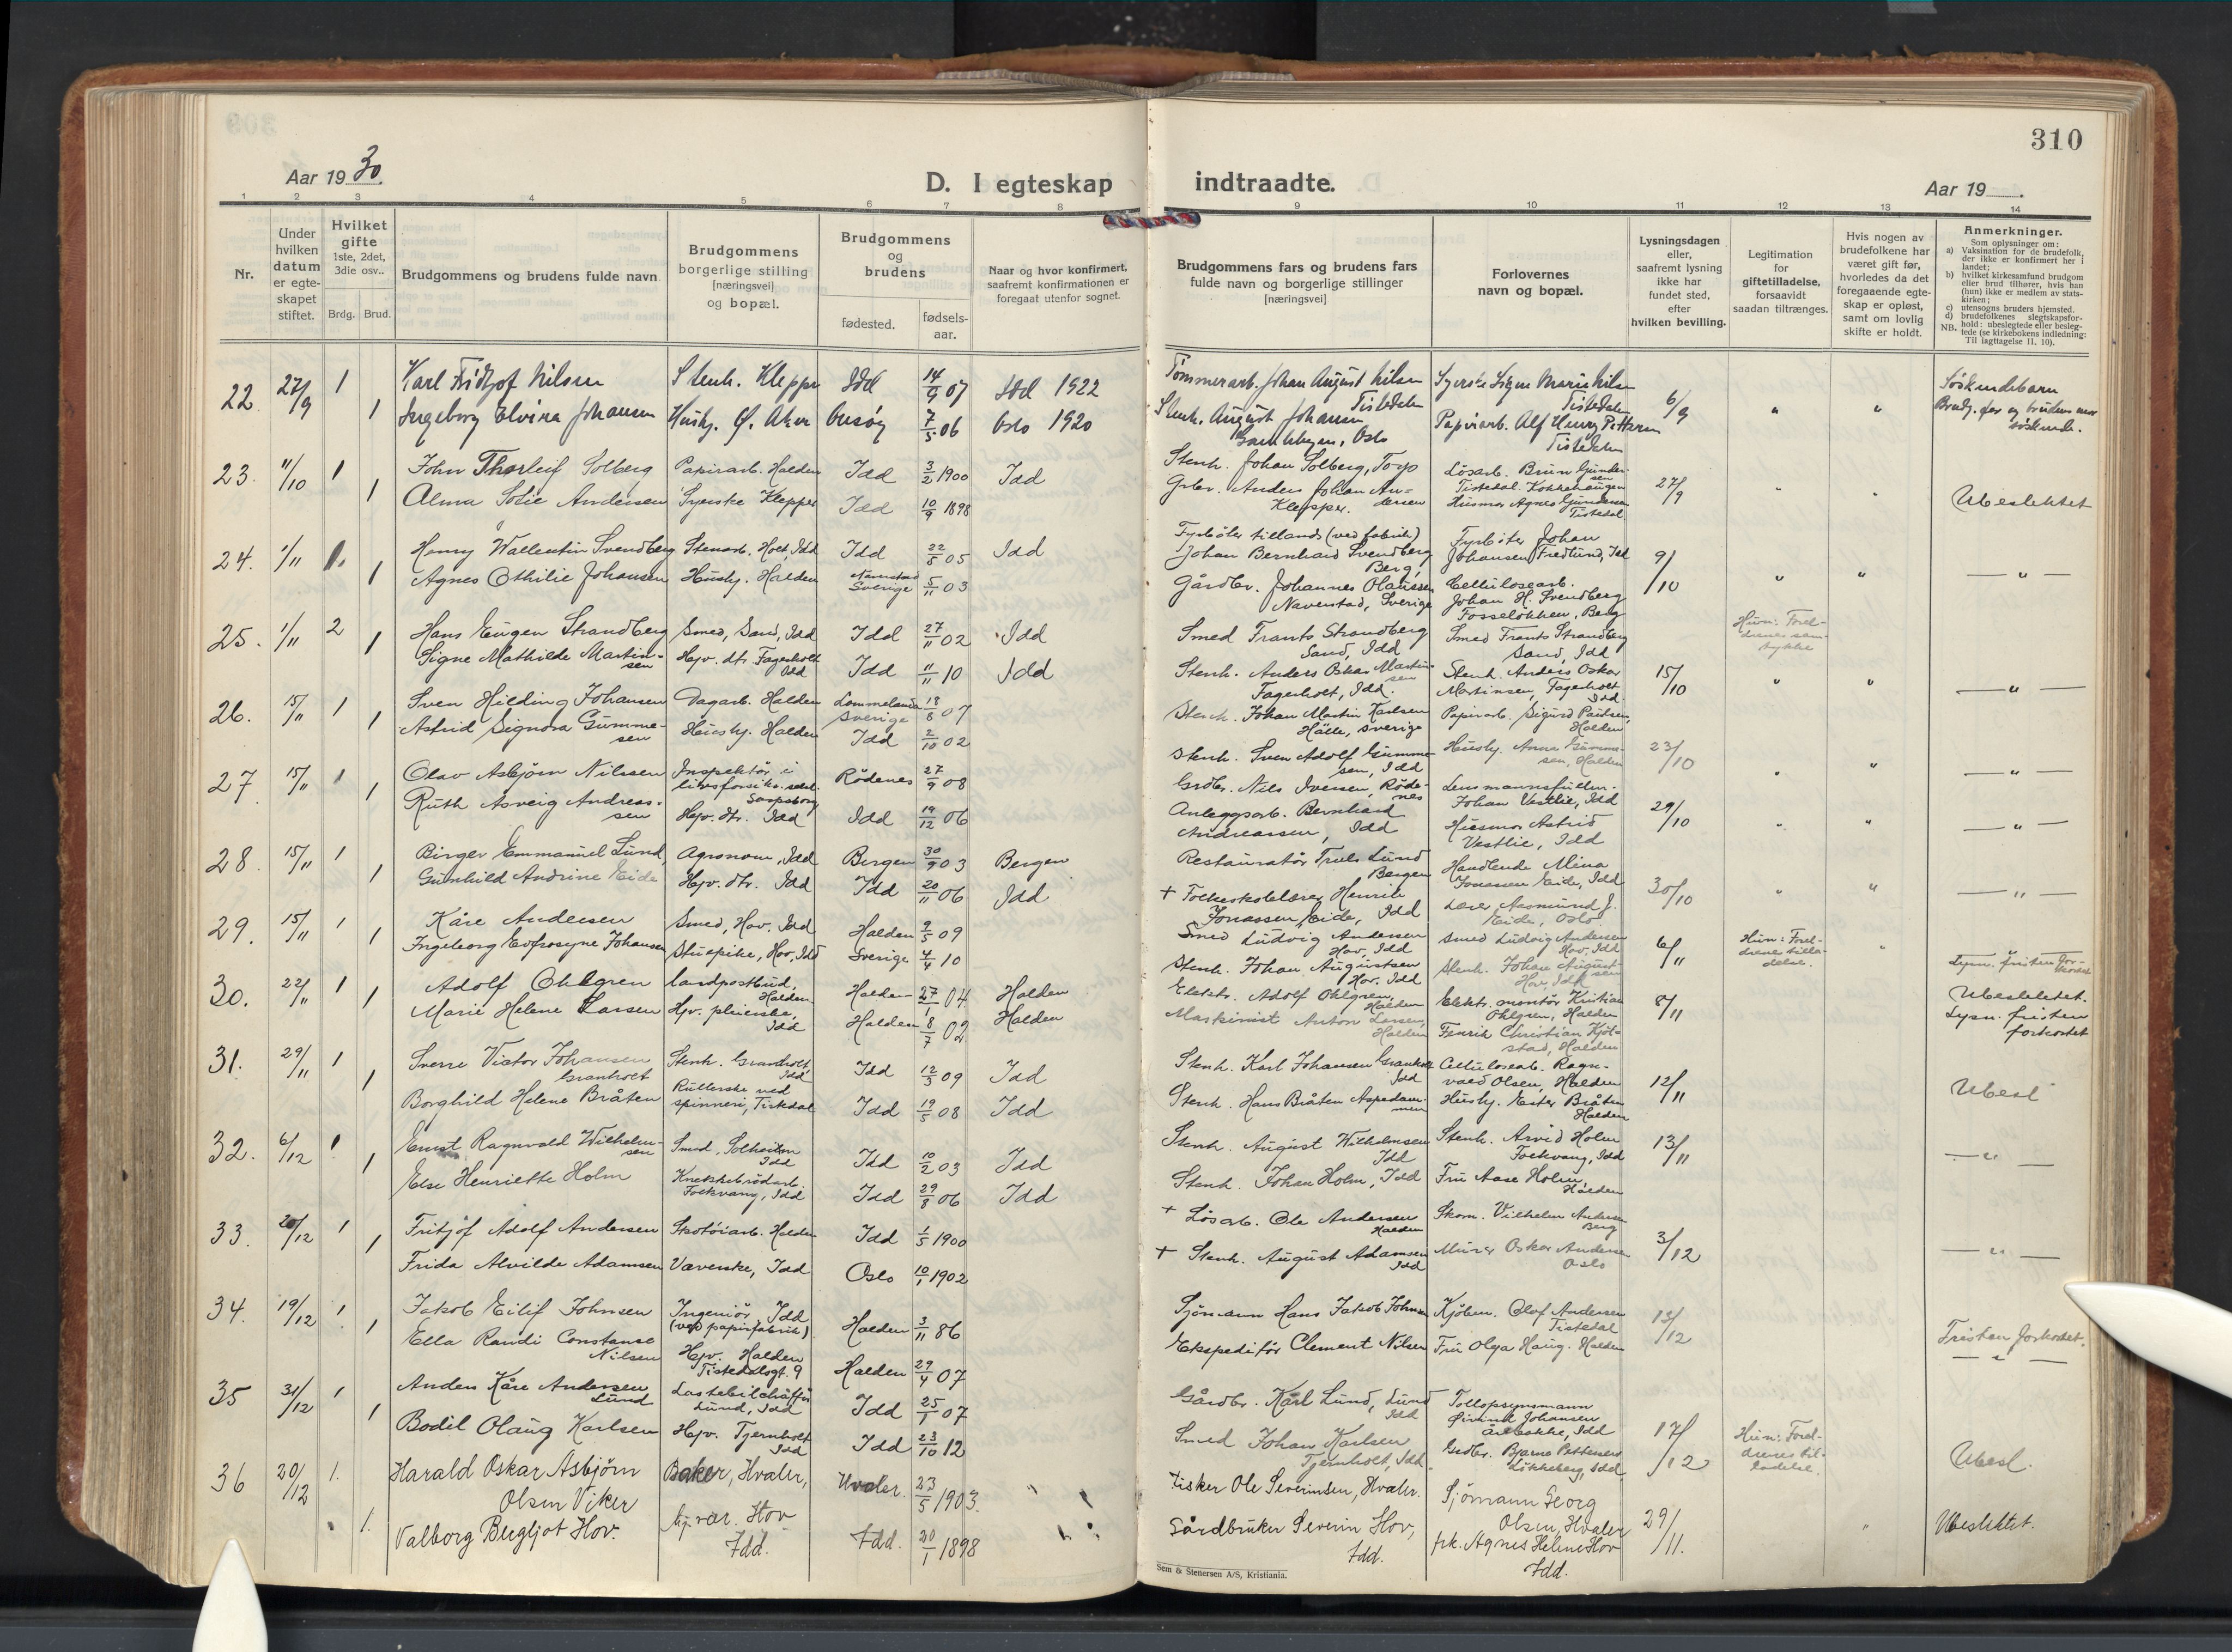 310
Aar 19 30.
D. I egteskap indtraadte.
Aar 19
1 2 3 4 5 6 7 8 9 10 11 12 13 14
Nr.
Under hvilken datum er egte-skapet stiftet.
Hvilket gifte 1ste, 2det, 3die osv..
Brdg. Brud.
Brudgommens og brudens fulde navn
Brudgommens borgerlige stilling [næringsvei] og bopæl.
Brudgommens og brudens
fødested.
fødsels-aar.
Naar og hvor konfirmert, saafremt konfirmationen er foregaat utenfor sognet.
Brudgommens fars og brudens fars fulde navn og borgerlige stillinger [næringsvei]
Forlovernes navn og bopæl.
Lysningsdagen eller, saafremt lysning ikke har fundet sted, efter hvilken bevilling.
Legitimation for giftetilladelse, forsaavidt saadan tiltrænges.
Hvis nogen av brudefolkene har været gift før, hvorledes da det foregaaende egte-skap er opløst, samt om lovlig skifte er holdt.
Anmerkninger.
Som oplysninger om:
a) Vaksination for de brudefolk, der ikke er konfirmert her i landet;
b) hvilket kirkesamfund brudgom eller brud tilhører, hvis han (hun) ikke er medlem av stats-kirken;
c) utensogns bruders hjemsted.
d) brudefolkenes slegtskapsfor-hold: ubeslegtede eller besleg-tede (se kirkebokens indledning:
NB. Til iagttagelse 11, 10).
22. 27/9 1 Karl Fridtjof Nilsen Stenh. Klepper Idd 14/9 07 Idd 1922 Tømmerarb. Johan August Nilsen Tistedalen Syerske Signe Marie Nilsen Tistedalen 6/9 " " Søskendebarn
1 Ingeborg Elvira Johansen Hushj. Ø. Aker 7/5 06 Oslo 1920 Stenh. August Johansen Oslo Papirarb. Alf Henry Pettersen Tistedalen Brudg. far og brudens mor søskende.
23. 11/10 1 John Thorleif Solberg Papirarb. Halden Idd 3/2 1900 Idd Stenh. Johan Solberg, Torp Løsarb. Gundersen Tistedal. Kokkehaugen 27/9 " "
1 Alma Sofie Andersen Syerske Klepper Idd 10/9 1898 Grbr. Anders Johan Andersen Klepper. Husmor Agnes Gundersen Tistedal Ubeslektet
24. 1/11 1. Henry Wallentin Svendberg Stenarb. Holt, Idd Idd 22/8 05 Idd Fyrbøter tillands (ved fabrik) Johan Bernhard Svendberg Berg, Fyrbøter Johan Johansen Fredlund, Idd 9/10
1 Agnes Othilie Johansen Hushj. Halden Naverstad Sverige 5/11 03 Gårdbr. Johannes Olaussen Naverstad, Sverige Cellulosearb. Johan H. Svendberg Fosseløkken, Berg " " — " —
25. 1/11 2 Hans Eugen Strandberg Smed, Sand, Idd Idd 27/11 02 Idd Smed Frants Strandberg Sand, Idd Smed Frants Strandberg Sand, Idd Hun: Foreldrenes samtykke
1 Signe Mathilde Martinsen Hjv. dtr. Fagerholt Idd Idd 11/11 10 Idd Stenh. Anders Oskar Martinsen Fagerholt, Idd. Stenh. Anders Oskar Martinsen, Fagerholt Idd 15/10 " " — " —
26. 15/11 1 Sven Hilding Johansen Dagarb. Halden Lommeland Sverige 18/8 07 Stenh. Johan Martin Karlsen Hälle, Sverige Papirarb. Sigurd Paulsen, Halden
1 Astrid Signora Gummesen Hushj. Halden Idd 2/10 02 Stenh. Sven Adolf Gummesen, Idd Hushj. Anna Gummesen, Halden 23/10 " " — " —
27. 15/11 1 Olav Asbjørn Nilssen Inspektør i livsforsikr.selsk. Sarpsborg Rødenes 27/9 08 Grdbr. Nils Iversen, Rødenes Lensmannsfullm. Johan Vestlie, Idd 29/10
1 Ruth Asveig Andreassen Hjv. dtr. Idd Idd 19/12 06 Anleggsarb. Bernhard Andreassen, Idd Husmor Astrid Vestlie, Idd " " — " —
28. 15/11 1 Birger Emmanuel Lund, Agronom, Idd Bergen 30/9 03 Bergen Restauratør Truls Lund Bergen Handlende Mina Jonassen Eide, Idd 30/10
1 Gunhild Andrine Eide Hjv. dtr. Idd Idd 20/11 06 Idd + Folkeskolelærer Henrik Jonassen Eide, Idd Lærer Aasmund J. Eide, Oslo " " — " —
29. 15/11 1 Kåre Andersen Smed, Hov, Idd Halden 9/5 09 Smed Ludvig Andersen Hov, Idd Smed Ludvig Andersen Hov, Idd 6/11 Hun: Foreldrenes tilladelse. "
1 Ingeborg Eufrosyne Johansen Stuepike, Hov, Idd Sverige 4/4 10 Stenh. Johan Augustsen Hov. Idd Stenh. Johan Augustsen Hov, Idd Lysn. fristen forkortet
30. 22/11 1 Adolf Ohlgren Landpostbud, Halden Halden 27/1 04 Halden Elektr. Adolf Ohlgren, Halden Elektr. montør Kristian Ohlgren, Halden 8/11 Ubeslektet.
1 Marie Helene Larsen Hjv. pleierske, Idd Halden 8/7 02 Halden Maskinist Anton Larsen, Halden Fenrik Christian Kjølstad, Halden Lysn. fristen forkortet
31. 29/11 1 Sverre Victor Johansen Granholt Stenh. Granholt, Idd Idd 12/5 09 Idd Stenh. Karl Johansen Granholt Idd Cellulosearb. Ragnvald Olsen, Halden 12/11
1 Borghild Helene Bråten Rullerske ved spinneri, Tistedal Idd 19/5 08 Idd Stenh. Hans Bråten Aspedammen Hushj. Ester Bråten Halden Ubesl
32. 6/12 1 Ernst Ragnvald Wilhelmsen Smed, Solheim Idd Idd 10/2 03 Idd Stenh. August Wilhelmsen Idd Stenh. Arvid Holm Folkvang, Idd 13/11
1 Else Henriette Holm Knekkebrødarb. Folkvang, Idd Idd 29/8 06 Idd Stenh. Johan Holm, Idd Fru Aase Holm, Halden — " —
33. 20/12 1 Fritjof Adolf Andersen Skotøiarb. Halden Idd 1/5 1900 + Løsarb. Ole Andersen Halden Skom. Vilhelm Andersen Berg 3/12
1 Frida Alvilde Adamsen Væverske, Idd Oslo 10/1 1902 + Stenh. August Adamsen Idd Murer Oskar Andersen Oslo — " —
34. 19/12 1. Jakob Eilif Johnsen Ingeniør, Idd (ved papirfabrik) Halden 3/11 86 Sjømann Hans Jakob Johnsen Kjøbm. Olaf Andersen Tistedal 13/12
1 Ella Randi Constanse Nilsen Hjv. Halden Tistedalsgt. 9 Halden 29/4 07 Ekspeditør Clement Nilsen Fru Olga Haug. Halden Fristen forkortet. — " —
35 31/12 1 Anders Kåre Andersen Lund Lastebilchaffør Lund, Idd Idd 25/1 07 Gårdbr. Karl Lund, Lund Idd Tollopsynsmann Øivind Johansen Idd 17/12 Hun: Foreldrenes tilladelse.
1 Bodil Olaug Karlsen Hjv. Tjernholt Idd Idd 23/10 12 Smed Johan Karlsen Tjernholt, Idd Grdbr. Bjarne Pettersen Løkkeberg, Idd Ubesl.
36 20/12 1. Harald Oskar Asbjørn Olsen Viker Baker, Hvaler, Hvaler. 23/5 1903. Fisker Ole Severinsen, Hvaler. Sjømann Georg Olsen, Hvaler 29/11.
1. Valborg Bergljot Hov. hj. vær. Hov Idd. Idd. 20/1 1898 Gårdbruker Severin Hov, Idd. frk. Agnes Helene Hov Idd. " Ubeslektet.
Sem & Stenersen A/S, Kristiania.